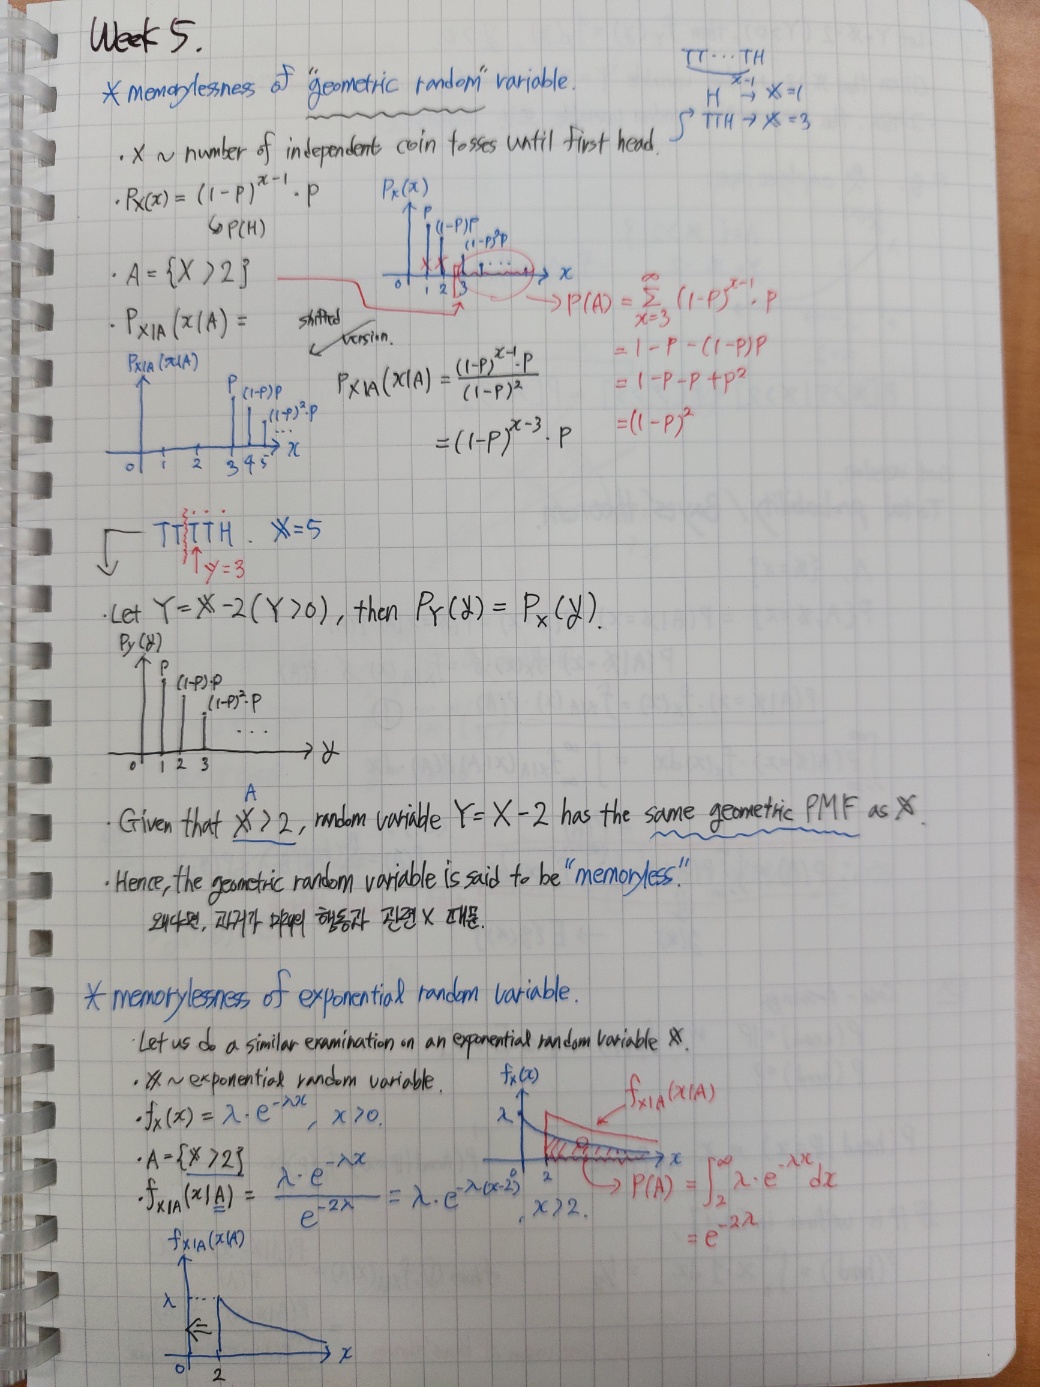 Week 5.
* memorylessness of "geometric random" variable.
TT···TH
x-1
H → X=1
TTH → X=3
· X ~ number of independent coin tosses until first head.
· Pₓ(x) = (1-P)^{x-1} · P
↳ P(H)
Pₓ(x)
P
(1-P)P
(1-P)²P
...
0 1 2 3 x
· A = {X > 2}
→ P(A) = Σ_{x=3}^{∞} (1-P)^{x-1} · P
= 1 - P - (1-P)P
= 1-P-P+P²
= (1-P)²
· P_{X|A}(x|A) =
shifted
version.
P_{X|A}(x|A)
P
(1-P)P
(1-P)²·P
...
0 1 2 3 4 5 x
P_{X|A}(x|A) = (1-P)^{x-1}·P / (1-P)²
= (1-P)^{x-3} · P
TTTTH. X=5
Y=3
· Let Y = X-2 (Y>0), then P_Y(y) = P_X(y).
P_Y(y)
P
(1-P)·P
(1-P)²·P
...
0 1 2 3 y
A
· Given that X>2, random variable Y = X-2 has the same geometric PMF as X.
· Hence, the geometric random variable is said to be "memoryless."
왜냐면, 과거가 미래의 행동과 관련 X 때문.
* memorylessness of exponential random variable.
· Let us do a similar examination on an exponential random variable X.
· X ~ exponential random variable.
· fₓ(x) = λ·e^{-λx}, x>0.
fₓ(x)
λ
f_{X|A}(x|A)
0 2 x
· A = {X > 2}
→ P(A) = ∫_2^∞ λ·e^{-λx} dx
= e^{-2λ}
· f_{X|A}(x|A) = λ·e^{-λx} / e^{-2λ} = λ·e^{-λ(x-2)}, x>2.
f_{X|A}(x|A)
λ
0 2 x